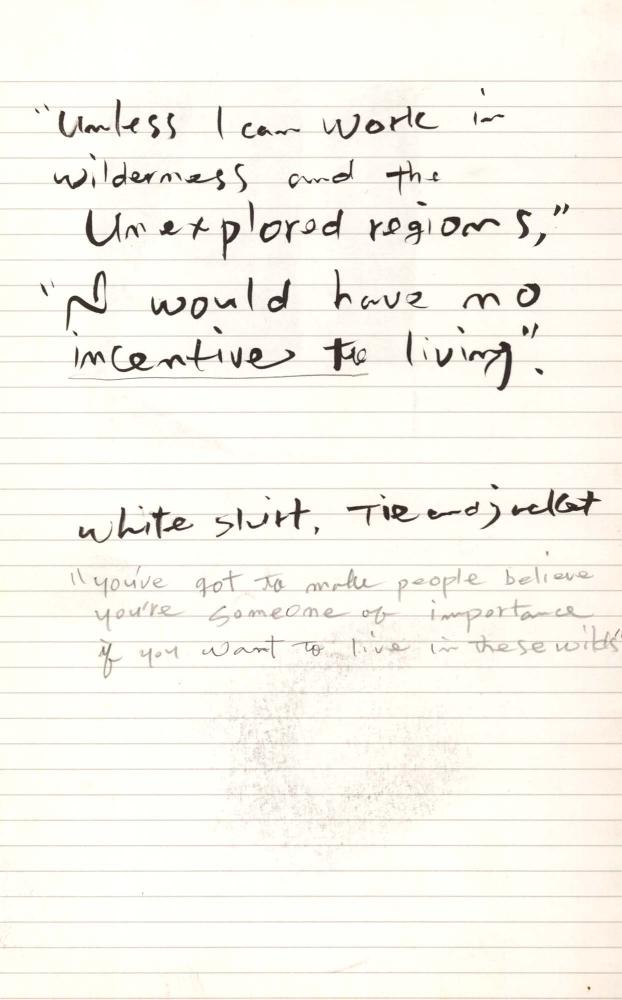 "Unless I can work in
wilderness and the
Unexplored regions,"
"I would have no
incentive to living".
white shirt, Tie and jacket
"you've got to make people believe
you're someone of importance
if you want to live in these wilds"